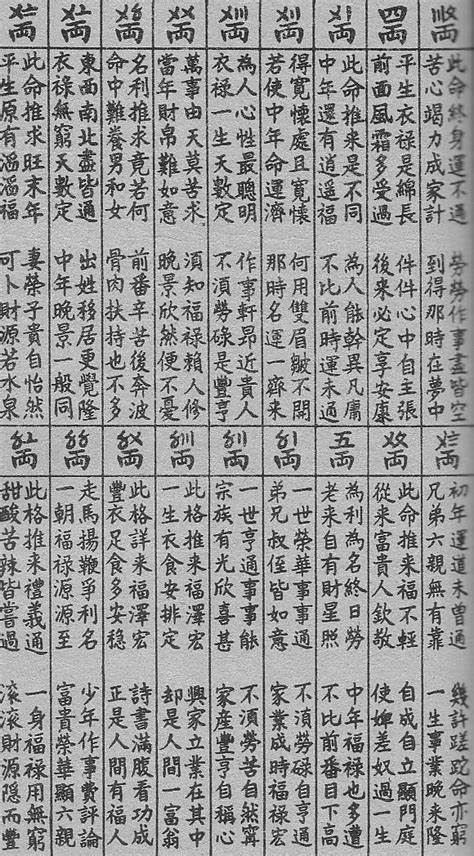 〣〩両
此命終身運不通 勞勞作事盡皆空
苦心竭力成家計 到得那時在夢中
四両
平生衣禄是綿長 件件心中自主張
前面風霜多受過 後来必定享安康
〤〡両
此命推来是不同 為人能幹異凡庸
中年還有逍遥福 不比前時運未通
〤〢両
得寛懷處且寛懷 何用雙眉皺不開
若使中年命運濟 那時名運一齊来
〤〣両
為人心性最聰明 作事軒昂近貴人
衣禄一生天數定 不須勞碌是豐亨
〤〤両
萬事由天莫苦求 須知福禄賴人修
當年財帛難如意 晚景欣然便不憂
〤〥両
名利推求竟若何 前番辛苦後奔波
命中難養男和女 骨肉扶持也不多
〤〦両
東西南北盡皆通 出姓移居更覺隆
衣禄無窮天數定 中年晚景一般同
〤〧両
此命推求旺末年 妻榮子貴自怡然
平生源有滔滔福 可卜財源若水泉
〤〨両
初年運道未曾通 幾許蹉跎命亦窮
兄弟六親無有靠 一生事業晚来隆
〤〩両
此命推来福不輕 自成自立顯門庭
從来富貴人欽敬 使婢差奴過一生
五両
為利為名終日勞 中年福禄也多遭
老来自有財星照 不比前番目下高
〥〡両
一世榮華事事通 不須勞碌自亨通
弟兄叔侄皆如意 家業成時福禄宏
〥〢両
一世亨通事事能 不須勞苦自然寗
宗族有光欣喜甚 家産豐亨自稱心
〥〣両
此格推来福澤宏 興家立業在其中
一生衣食安排定 却是人間一富翁
〥〤両
此格詳来福澤宏 詩書滿腹看功成
豐衣足食多安穩 正是人間有福人
〥〥両
走馬揚鞭爭利名 少年作事費評論
一朝福禄源源至 富貴榮華顯六親
〥〦両
此格推来禮義通 一身福禄用無窮
甜酸苦辣皆嘗過 滾滾財源隱而豐